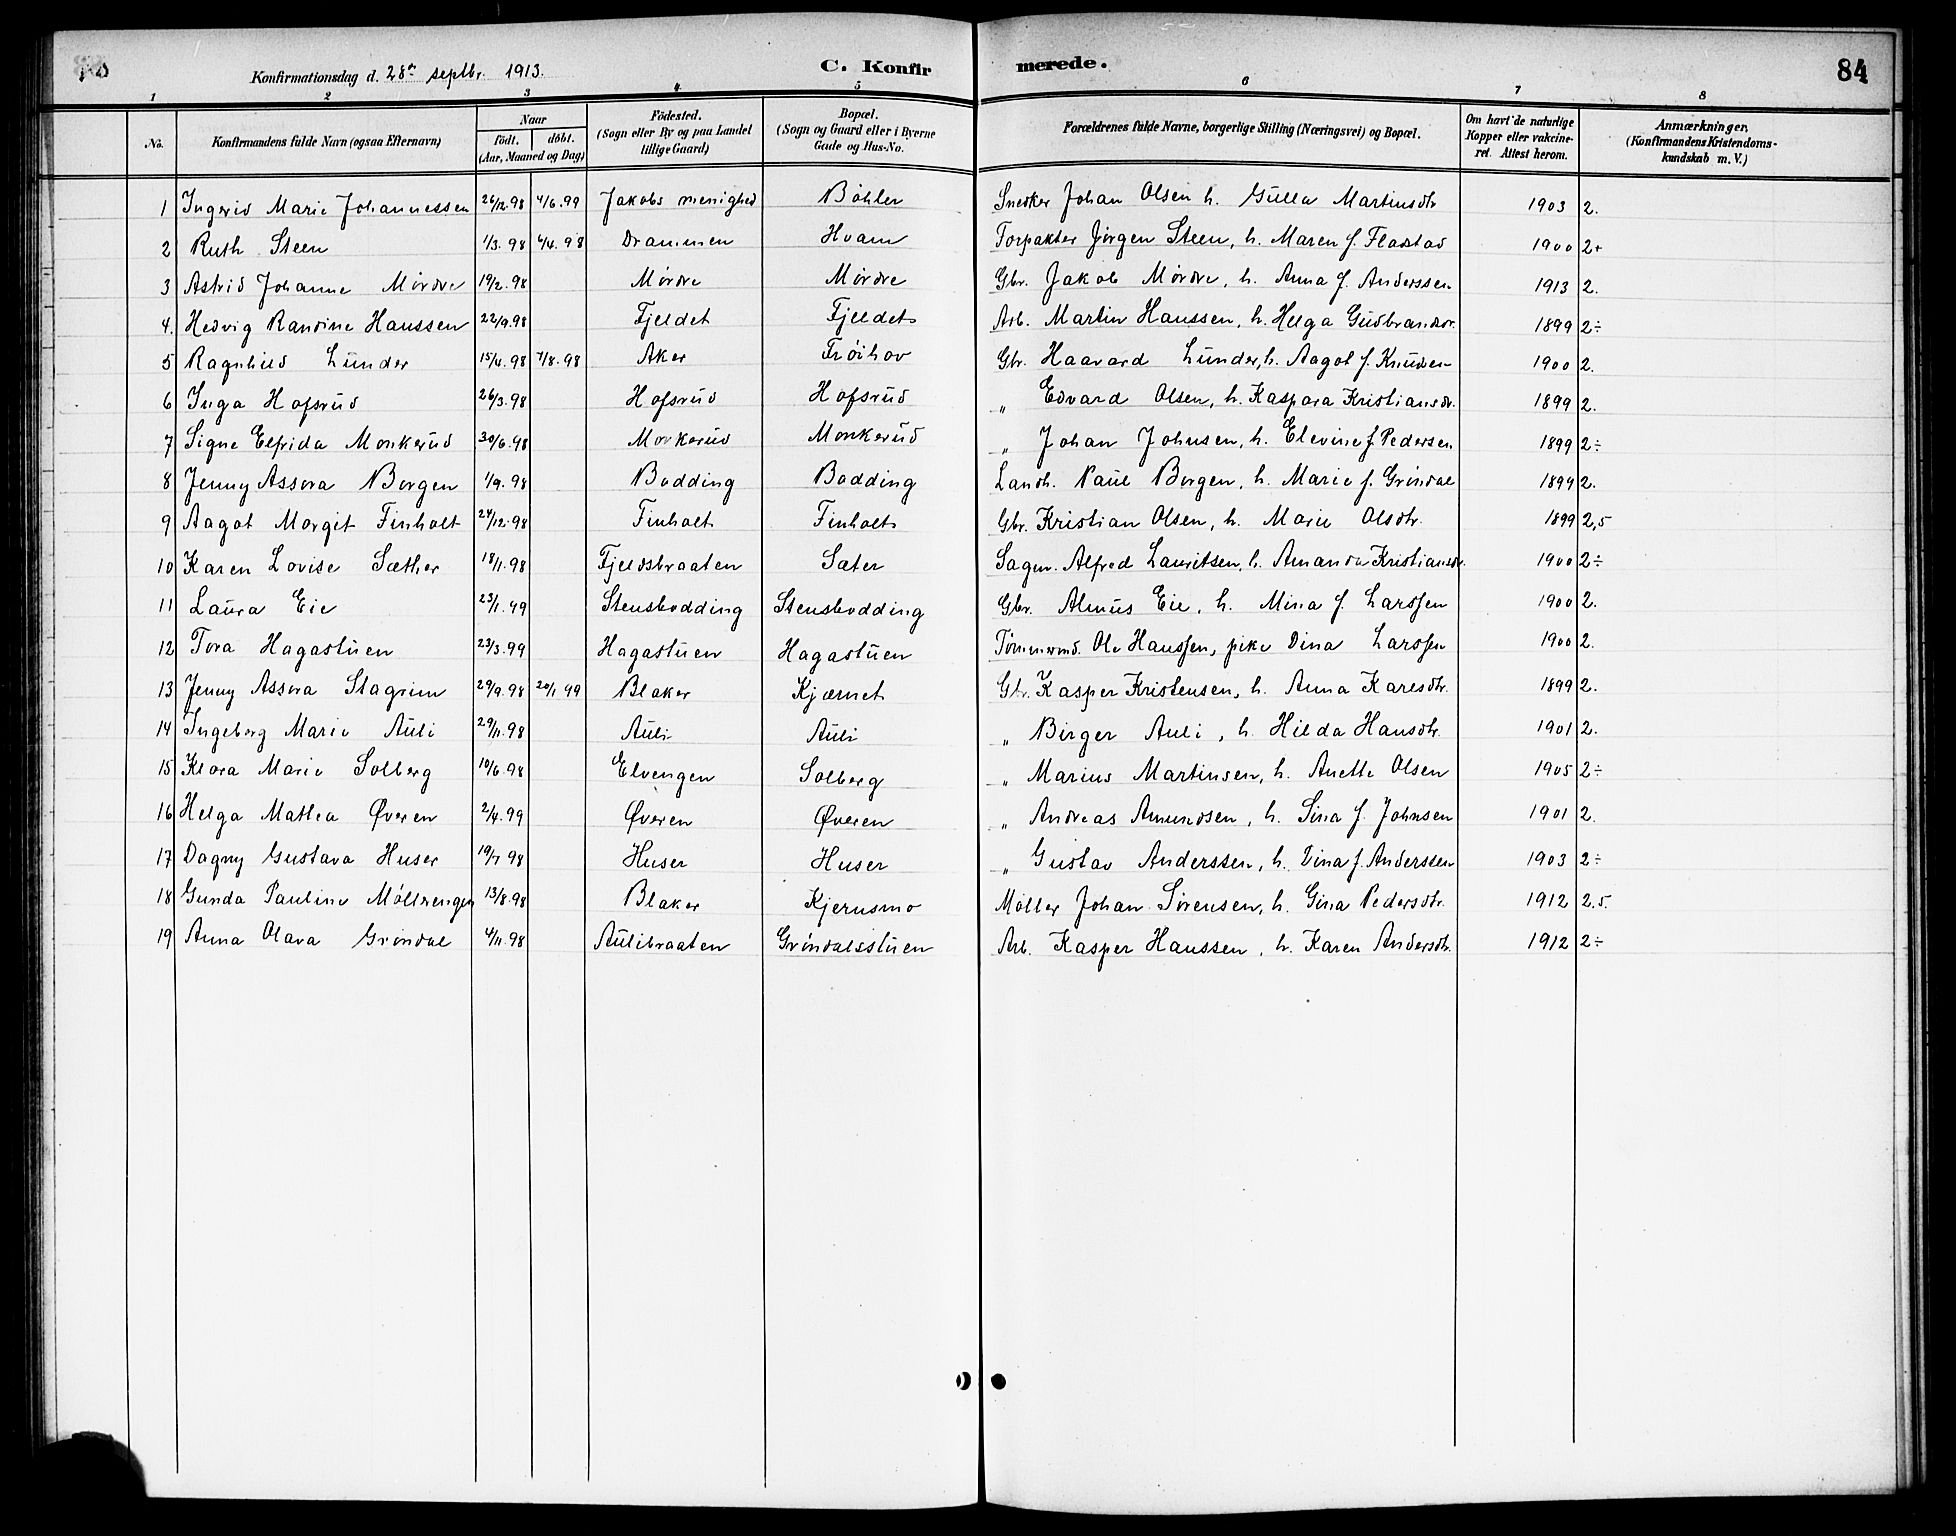 Konfirmationsdag d. 28de septbr. 1913. C. Konfirmerede. 84
1 2 3 4 5 6 7 8
No. Konfirmandens fulde Navn (ogsaa Efternavn) Naar født. døbt. (Aar, Maaned og Dag) Födested. (Sogn eller By og paa Landet tillige Gaard) Bopæl. (Sogn og Gaard eller i Byerne Gade og Hus-No. Forældrenes fulde Navne, borgerlige Stilling (Næringsvei) og Bopæl. Om havt de naturlige Kopper eller vakcineret. Attest herom. Anmærkninger. (Konfirmandens Kristendomskundskab m. V.)
1 Ingerid Marie Johannessen 26/12.98 4/6.99 Jakobs menighed Bøhler Snedker Johan Olsen h. Gulla Martinsdtr 1903 2.
2 Ruth Steen 1/3.98 4.98 Drammen Hvam Forpakter Jørgen Steen, h. Maren f. Fladstad 1900 2+
3 Astrid Johanne Mørdre 19/2.98 Mørdre Mørdre Gbr. Jakob Mørdre, h. Anna f. Anderssen 1913 2.
4. Hedvig Randine Hanssen 22/9.98 Fjeldet Fjeldet Arb. Martin Hanssen, h. Helga Gudbrandsdr. 1899 2÷
5 Ragnhild Lunder 15/4.98 7/8.98 Aker Frøihov Gbr. Haavard Lunder, h. Aagot f. Knudsen 1900 2.
6 Inga Hofsrud 26/3.98 Hofsrud Hofsrud " Edvard Olsen, h. Kaspara Kristiansdr. 1899 2.
7 Signe Elfrida Monkerud 30/6.98 Monkerud Monkerud " Johan Johnsen, h. Elevine f. Pedersen 1899 2÷
8 Jenny Assora Borgen 1/9.98 Bodding Bodding Landh. Paul Borgen, h. Marie f. Grindal 1899 2.
9 Aagot Margit Finholt 24/12.98 Finholt Finholt Gbr. Kristian Olsen, h. Marie Olsdtr. 1899 2,5
10 Karen Lovise Sæther 18/11.98 Fjeldsbraaten Sæter Sagm. Alfred Lauritsen, h. Amanda Kristiansdr. 1900 2÷
11 Laura Eie 23/1.99 Stensbodding Stensbodding Gbr. Almus Eie, h. Mina f. Larssen 1900 2.
12 Tora Hagastuen 23/3.99 Hagastuen Hagastuen Tømmermd. Ole Hanssen, pike Dina Larssen 1900 2.
13 Jenny Assora Stagrim 29/9.98 20/1 99 Blaker Kjærnet Gbr. Kasper Kristensen, h. Anna Karlsdtr. 1899 2.
14 Ingeborg Marie Auli 29/11.98 Auli Auli " Birger Auli, h. Hilda Hansdtr. 1901 2.
15 Klara Marie Solberg 10/6.98 Elvengen Solberg " Marius Martinsen, h. Anette Olsen 1905 2÷
16 Helga Mathea Øveren 2/4.99 Øveren Øveren " Andreas Amundsen, h. Sina f. Johnsen 1901 2.
17 Dagny Gustava Huser 19/7 98 Huser Huser " Gustav Anderssen, h. Dina f. Anderssen 1903 2÷
18 Gunda Pauline Møllerengen 13/8.98 Blaker Kjerusmo Møller Johan Sørensen, h. Gina Pedersdtr. 1912 2,5.
19 Anna Olava Grøndal 4/11.98 Aulibraaten Grøndalsstuen Arb. Kasper Hanssen, h. Karen Andersdtr. 1912 2÷